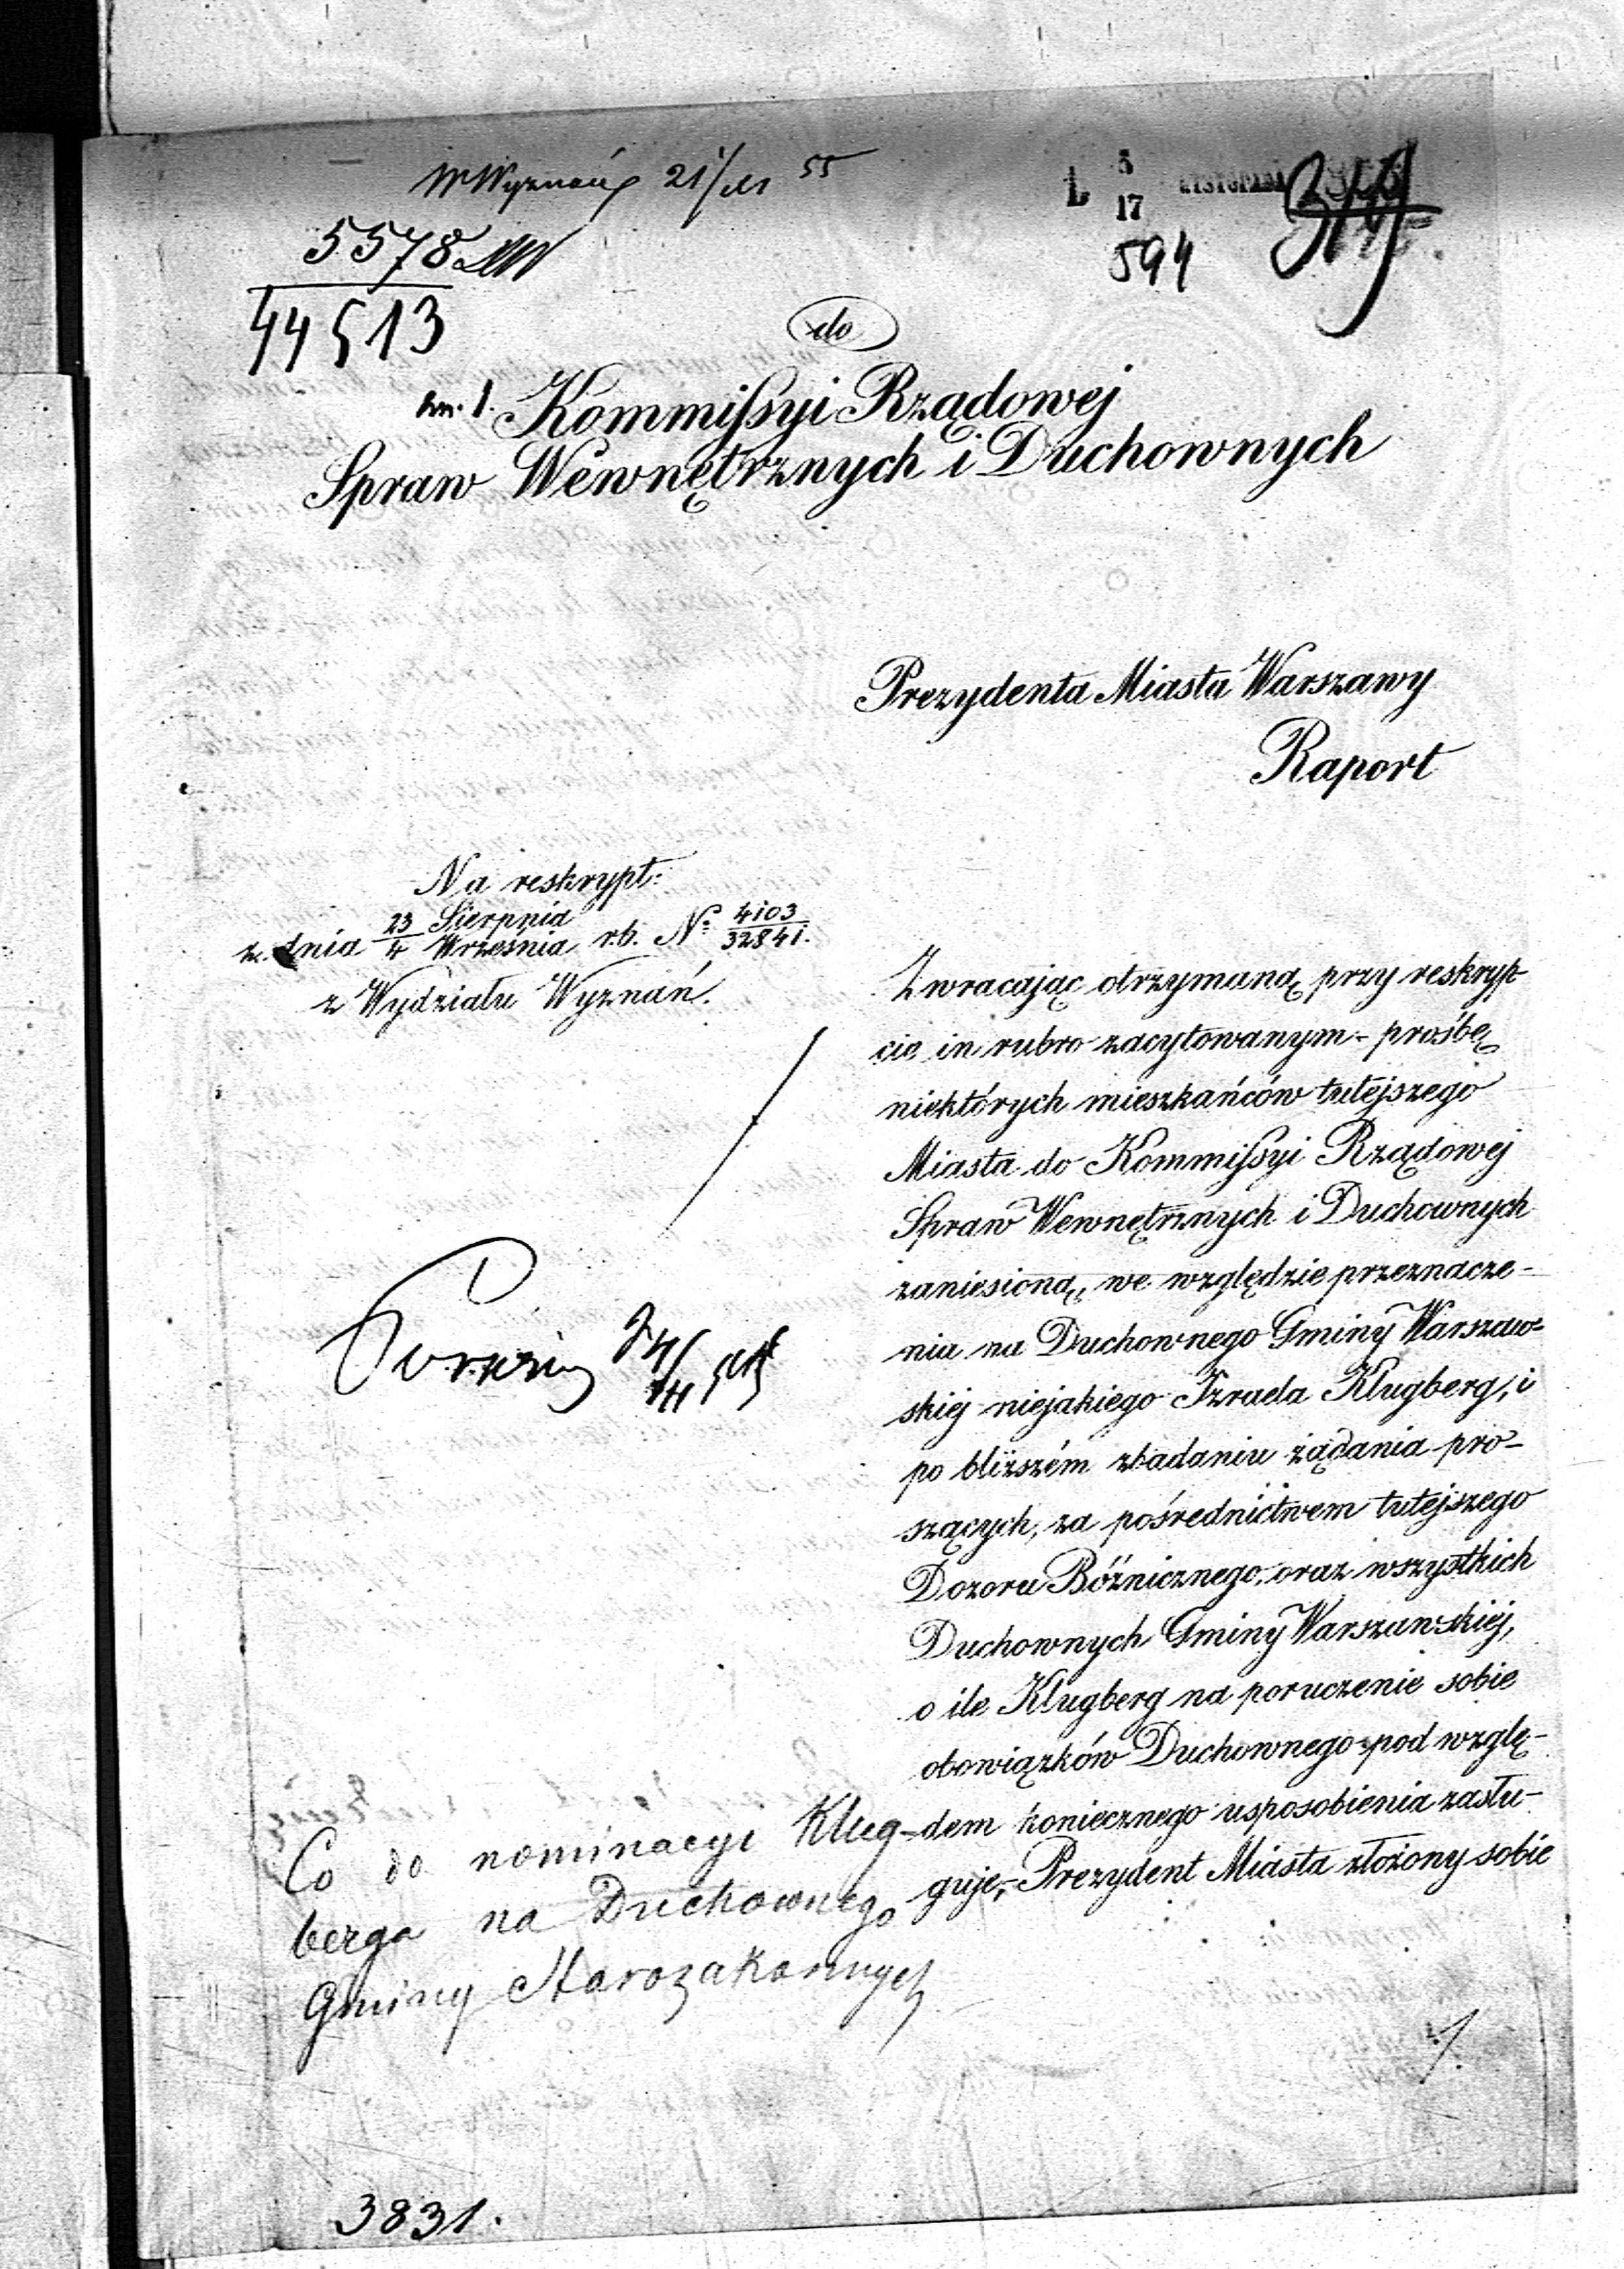 W Wyznań 21/11 55
5578
44513
L 5 17 LISTOPADA
594
do
zn. 1. Kommissyi Rządowej
Spraw Wewnętrznych i Duchownych
Prezydenta Miasta Warszawy
Raport
Na reskrypt:
z dnia 23 Sierpnia / 4 Września r.b. No 4103/32841.
z Wydziału Wyznań.
Zwracając otrzymaną przy reskryp
cie in rubro zacytowanym - prośbę
niektórych mieszkańców tutejszego
Miasta do Kommissyi Rządowej
Spraw Wewnętrznych i Duchownych
zaniesioną, we względzie przeznacze-
nia na Duchownego Gminy Warszaw-
skiej niejakiego Izraela Klugberg, i
po bliższém zbadaniu żądania pro-
szących, za pośrednictwem tutejszego
Dozoru Bóżnicznego, oraz wszystkich
Duchownych Gminy Warszawskiéj,
o ile Klugberg na poruczenie sobie
obowiązków Duchownego pod wzglę-
dem koniecznego usposobienia zasłu-
guje, - Prezydent Miasta złożony sobie
Co do nominacyi Klug-
berga na Duchownego
Gminy Starozakonnych
3831.